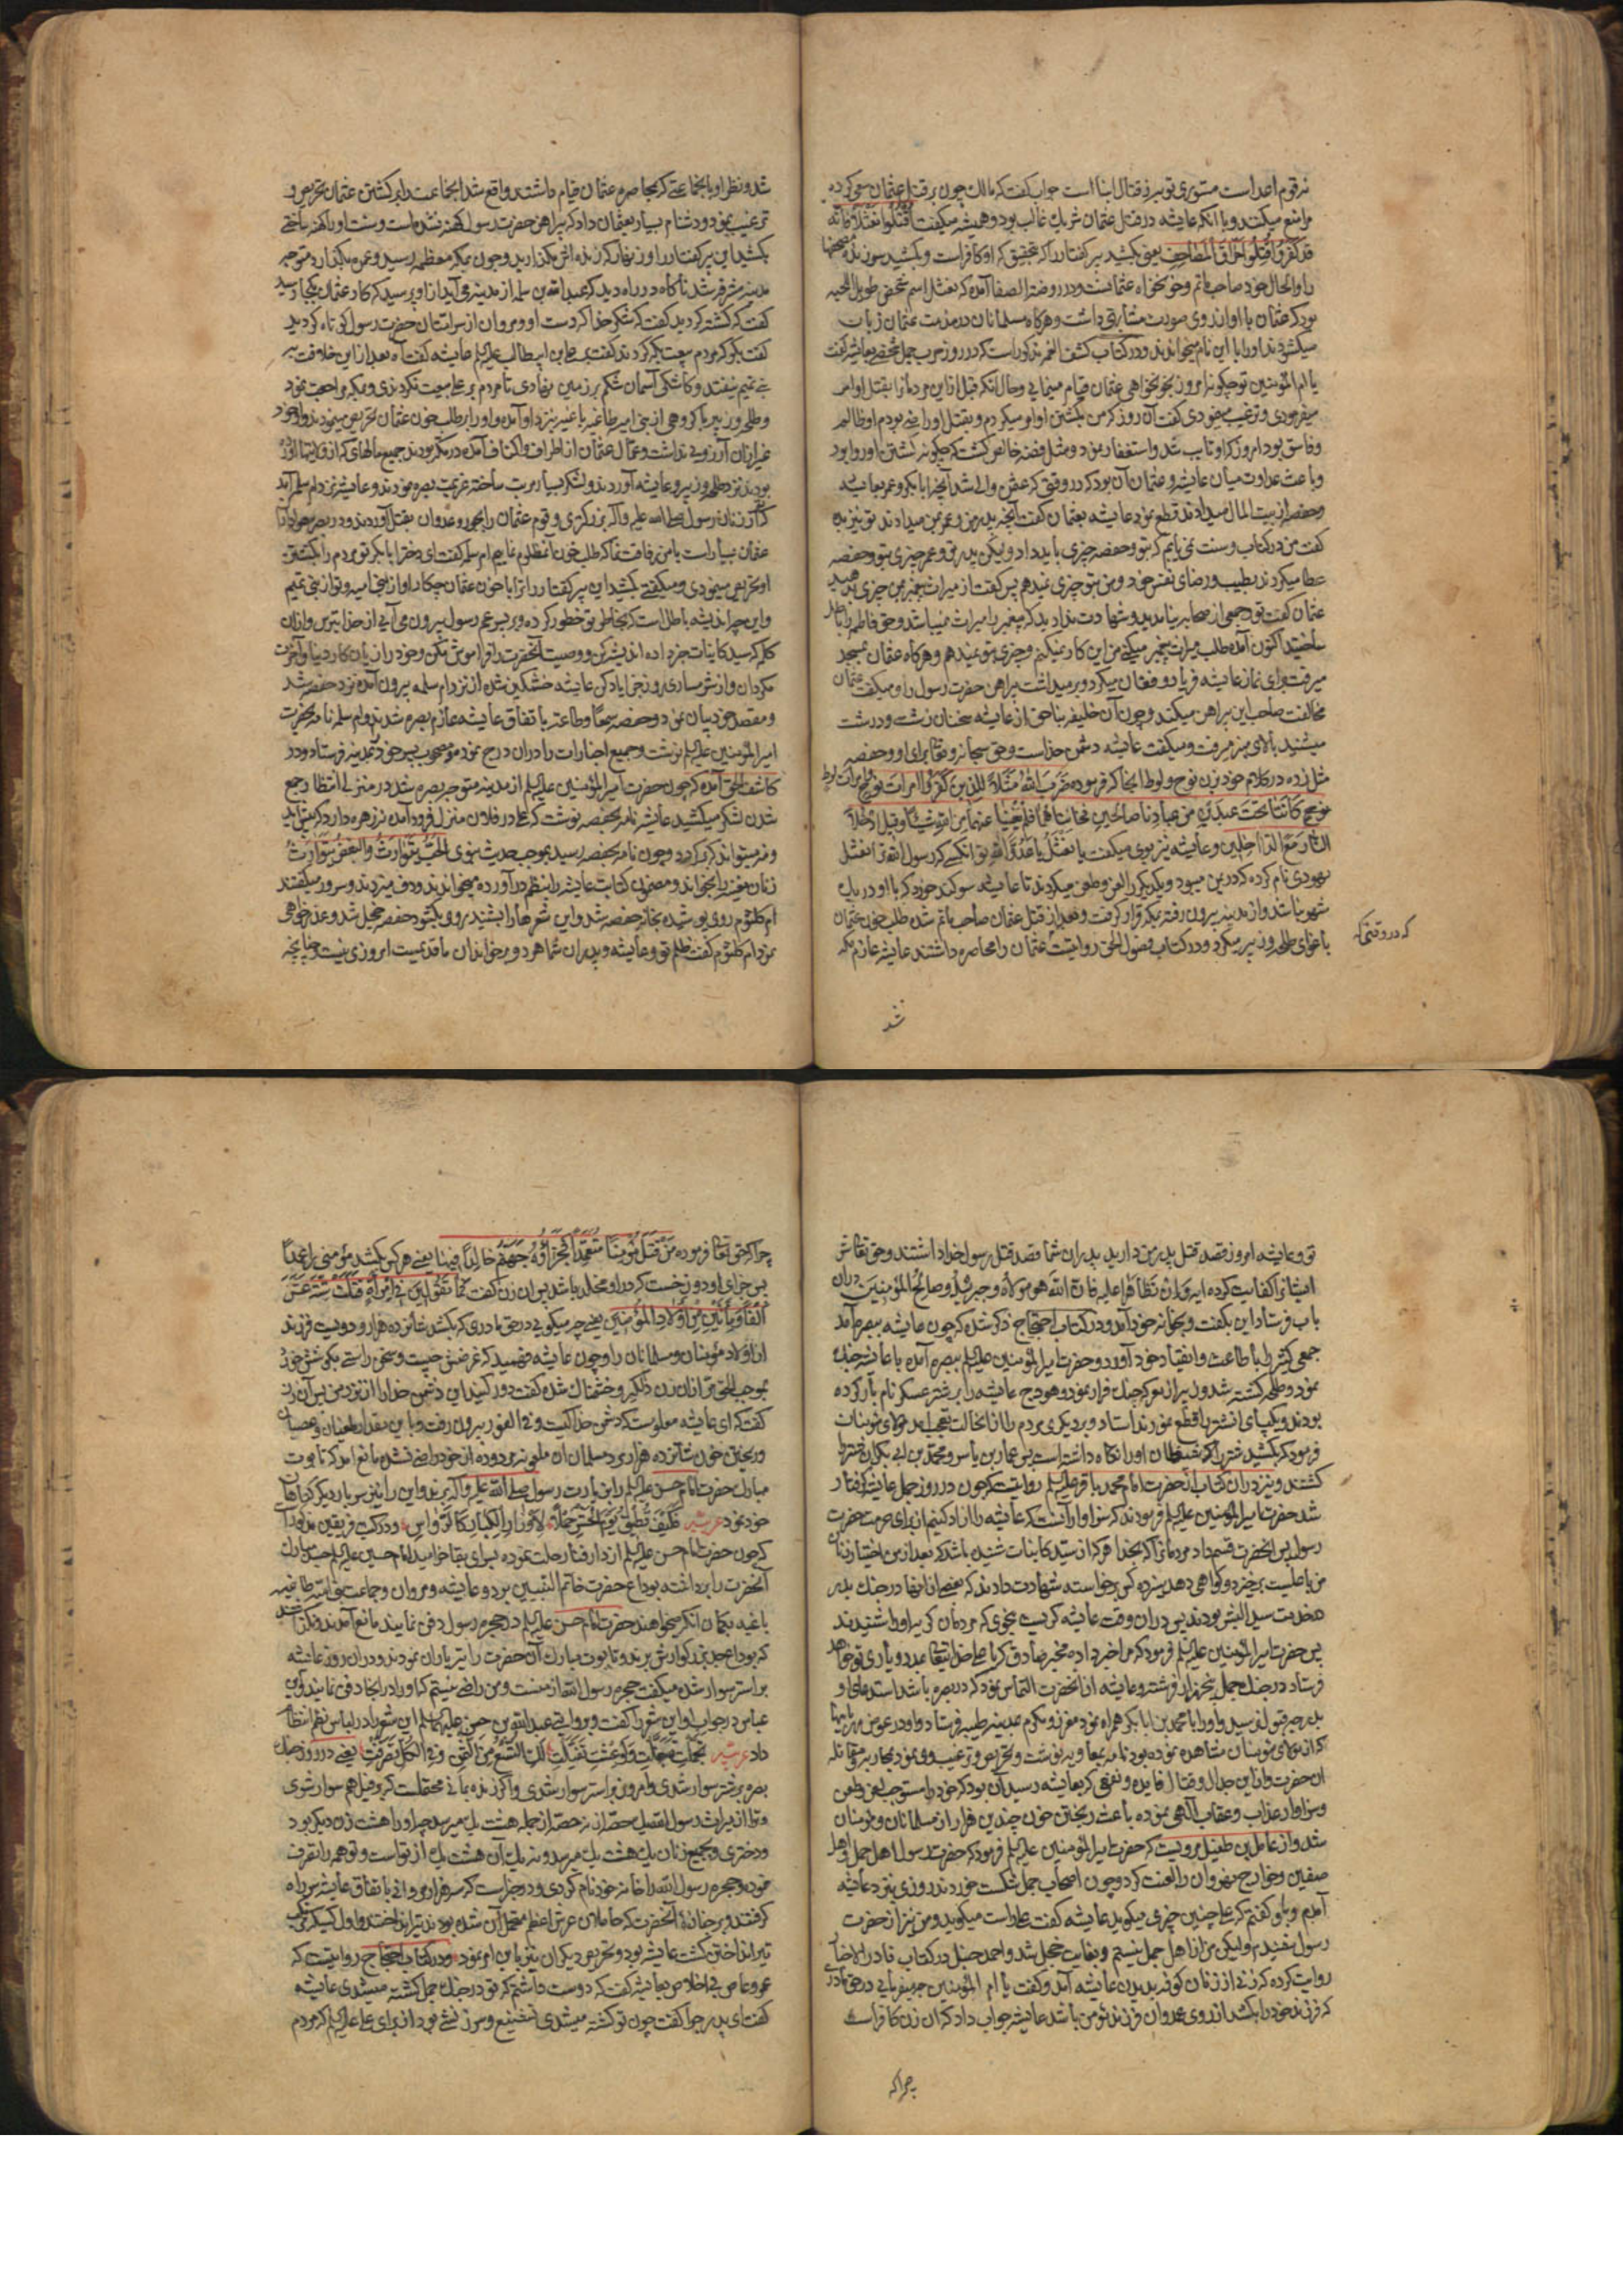 نه قوم اعداست مستوری تو به ز قتال ابنا است جواب گفت که مالک چون بر قتل عثمان سعی کرده
مرا منع میکند و با آنکه عایشه در قتل عثمان شریک غالب بود و همیشه میگفت اقتلوا نعثلا فانه
قد کفر و اقتلوا حراق المصاحف یعنی بکشید پیر کفتار را که بتحقیق که او کافر است و بکشید سوزنده مصحفها
را و الحال خود صاحب ماتم و خونخواه عثمانست و در روضة الصفا آمده که نعثل اسم شخصی طویل اللحیه
بود که عثمان با او از روی صورت مشابهتی داشت و هرگاه مسلمانان در مذمت عثمان زبان
میگشودند او را با این نام میخواندند و در کتاب کشف الغمه مذکور است که در روز حرب جمل شخصی بعایشه گفت
یا ام المؤمنین تو چگونه امروز بخونخواهی عثمان قیام مینمایی و حال آنکه قبل ازین مردمانرا بقتل او امر
میفرمودی و ترغیب مینمودی گفت آن روز که من بکشتن او امر میکردم و بقتل او راضی بودم او ظالم
و فاسق بود امروز که او تایب شد و استغفار نمود و مثل فضه خالص گشت که چگونه کشتن او روا بود
و باعث عداوت میان عایشه و عثمان آن بود که در وقتی که عثمان والی شد آنچه ابابکر و عمر بعایشه
و حفصه از بیت المال میدادند قطع نمود عایشه بعثمان گفت آنچه پدر من و عمر بمن میدادند تو نیز بده
گفت من در کتاب و سنت نمی یابم که بتو و حفصه چیزی باید داد ولیکن پدر تو و عمر چیزی بتو و حفصه
عطا میکردند بطیب و رضای نفس خود و من بتو چیزی نمیدهم پس گفت از میراث پیغمبر من چیزی بمن دهید
عثمان گفت تو و جمعی از صحابه بیامدید و شهادت دادید که پیغمبر را میراث نمیباشد و حق فاطمه را باطل
ساختید اکنون آمده طلب میراث پیغمبر میکنی من این کار نمیکنم و چیزی بتو نمیدهم و هرگاه عثمان بمسجد
میرفت برای نماز عایشه فریاد و فغان میکرد و برمیداشت پیراهن حضرت رسول را و میگفت عثمان
مخالفت صاحب این پیراهن میکند و چون آن خلیفه بناحق از عایشه سخنان زشت و درشت
میشنید بالای منبر میرفت و میگفت عایشه دشمن خداست و حق سبحانه و تعالی برای او و حفصه
مثل زده در کلام خود بزن نوح و لوط آنجا که فرموده ضرب الله مثلا للذین کفروا امرأت نوح و امرأت لوط
کانتا تحت عبدین من عبادنا صالحین فخانتاهما فلم یغنیا عنهما من الله شیئا و قیل ادخلا
النار مع الداخلین و عایشه نیز بوی میگفت یا نعثل یا عدو الله تو آنکسی که رسول الله ترا نعثل
یهودی نام کرده که در یمن میبود و یکدیگر را لعن و طعن میکردند تا عایشه سوگند خورد که با او در یک
شهر نباشد و از مدینه بیرون رفته بمکه قرار گرفت و بعد از قتل عثمان صاحب ماتم شده طلب خون عثمان
باغوای طلحه و زبیر میکرد و در کتاب فصول الحق روایتست عثمان را محاصره داشتند عایشه عازم مکه
که در وقتی که
شد
شد و نظر او با جماعتی که بمحاصره عثمان قیام داشتند واقع شد آنجماعت را بر کشتن عثمان تحریص و
ترغیب نمود و دشنام بسیار بعثمان داد که پیراهن حضرت رسول کهنه نشده است و سنت او را کهنه ساختی
بکشید این پیر کفتار را و زینهار که زنده اش مگذارید و چون بمکه معظمه رسید و عمره بگذارد متوجه
مدینه مشرفه شد ناگاه در راه دید که عبدالله بن سلمه از مدینه می آید از او پرسید که کار عثمان بکجا رسید
گفت که کشته گردید گفت که شکر خدا که دست او و مروان از سر امتان حضرت رسول کوتاه گردید
گفت بگو که مردم بیعت بکه کردند گفت بعلی بن ابیطالب علیه السلم عایشه گفت آه بعد ازین خلافت به
بنی تیم نیفتد و کاشکی آسمان شکم بر زمین نهادی تا مردم بر علی بیعت نکردندی و بمکه مراجعت نمود
و طلحه و زبیر با گروهی از بنی امیه طاغیه باغیه نزد او آمدند و او را بر طلب خون عثمان تحریص مینمودند و او خود
غیر از آن آرزویی نداشت و عمال عثمان از اطراف و اکناف آمده در مکه بودند جمیع مالهای که از ولایتها آورده
بودند نزد طلحه و زبیر و عایشه آوردند و لشکر بسیار مرتب ساخته عزیمت بصره نمودند و عایشه نزد ام سلمه آمد
که از زنان رسول صلی الله علیه و آله بزرگتری و قوم عثمان را بجور و عدوان بقتل آوردند و در بصره هواداران
عثمان بسیار است با من رفاقت نما که طلب خون آن مظلوم نماییم ام سلمه گفت ای دختر ابابکر تو مردم را بکشتن
او تحریص مینمودی و میگفتی بکشید این پیر کفتار را ترا با خون عثمان چکار او از بنی امیه و تو از بنی تیم
و این چه اندیشه باطل است که بخاطر تو خطور کرده و بر پسر عم رسول بیرون می آیی از خدا بترس و از آن
کلام که سید کاینات خبر داده اندیشه کن و وصیت آنحضرت را فراموش مکن و خود را زیان کار دنیا و آخرت
مگردان و از شرمساری روز جزا یاد کن عایشه خشمگین شده از نزد ام سلمه بیرون آمده نزد حفصه شد
و مقصد خود بیان نمود و حفصه سمعا و طاعة باتفاق عایشه عازم بصره شدند و ام سلمه نامه بحضرت
امیر المؤمنین علیه السلم نوشت و جمیع اخبارات را در آن درج نموده مصحوب پسر خود بمدینه فرستاد و در
کاشف الحق آمده که چون حضرت امیر المؤمنین علیه السلم از مدینه متوجه بصره شد در منزلی انتظار جمع
شدن لشکر میکشید عایشه نامه بحفصه نوشت که علی در فلان منزل فرود آمده نه زهره دارد که پیش آید
و نه میتواند که برگردد و چون نامه بحفصه رسید بموجب حدیث نبوی الحب یتوارث و البغض یتوارث
زنان مغنیه را بخواند و مضمون کتابت عایشه را بنظم درآورده میخواندند و دف میزدند و سرود میگفتند
ام کلثوم روی پوشیده بخانه حفصه شد و این شعرها را بشنید رو بگشود حفصه خجل شد و عذرخواهی
نمود ام کلثوم گفت ظلم تو و عایشه و پدران شما هر دو بر خاندان ما قدیمیست امروزی نیست چنانچه
تو و عایشه امروز قصد قتل پدر من دارید پدران شما قصد قتل رسول خدا داشتند و حق تعالی شر
ایشانرا کفایت کرده آیه و ان تظاهرا علیه فان الله هو مولاه و جبریل و صالح المؤمنین در آن
باب فرستاد این بگفت و بخانه خود آمد و در کتاب احتجاج ذکر شده که چون عایشه ببصره آمد
جمعی کثیر را باطاعت و انقیاد خود آورد و حضرت امیر المؤمنین علیه السلم ببصره آمده با عایشه جنگ
نمود و طلحه کشته شد و زبیر از معرکه جنگ فرار نمود و هودج عایشه را بر شتر عسکر نام بار کرده
بودند و یکپای آن شتر را قطع نمودند استاد و بر دیگری مردم را از آن حالت تعجب آمد مولای مؤمنان
فرمود که بکشید شتر را که شیطان او را نگاه داشته است پس عمار بن یاسر و محمد بن ابی بکر آن شتر را
کشتند و نیز در آن کتاب از حضرت امام محمد باقر علیه السلم روایتست که چون در روز جمل عایشه گرفتار
شد حضرت امیر المؤمنین علیه السلم فرمودند که سزاوار آنست که عایشه را آزاد کنیم از برای حرمت حضرت
رسول پس آنحضرت قسم داد مردمانرا که بخدا هر که از سید کاینات شنیده باشد که بعد از من اختیار زنان
من با علیست برخیزد و گواهی دهد سیزده کس برخاسته شهادت دادند که بعضی از آنها در جنگ بدر
بخدمت سید البشر بودند پس در آن وقت عایشه گریست بنحوی که مردمان گریه او را شنیدند
پس حضرت امیر المؤمنین علیه السلم فرمود که مرا خبر داده مخبر صادق که یا علی خدایتعالی بمدد و یاری تو خواهد
فرستاد در جنگ جمل پنجهزار فرشته و عایشه از آنحضرت التماس نمود که در بصره باشد استدعای او
بدرجه قبول نرسید و او را با محمد بن ابابکر همراه نمود معزز و مکرم بمدینه طیبه فرستاد و او در عوض مهربانیها
که از مولای مؤمنان مشاهده نموده بود نامه بمعاویه نوشت و تحریص و ترغیب وی نمود بمحاربه و مقاتله
آن حضرت و از این جدال و قتال فایده و نفعی که بعایشه رسید آن بود که خود را مستوجب لعن و طعن
و سزاوار عذاب و عقاب الهی نموده باعث ریختن خون چندین هزار از مسلمانان و مؤمنان
شد و از عامر بن طفیل مرویست که حضرت امیر المؤمنین علیه السلم فرمود که حضرت رسول اهل جمل و اهل
صفین و خوارج نهروان را لعنت کرد و چون اصحاب جمل شکست خوردند روزی نزد عایشه
آمدم و باو گفتم که علی چنین چیزی میگوید عایشه گفت علی راست میگوید و من نیز از حضرت
رسول شنیدم ولیکن من از اهل جمل نیستم و بغایت خجل شد و احمد حنبل در کتاب
روایت کرده که زنی از زنان کوفه بدیدن عایشه آمد و گفت یا ام المؤمنین چه میفرمایی در حق مادری
که فرزند خود را بکشد از روی عدوان و فرزند مؤمن باشد عایشه جواب داد که آن زن کافر است
چرا که
چرا که حق تعالی فرموده من قتل مؤمنا متعمدا فجزاؤه جهنم خالدا فیها یعنی هر کس بکشد مؤمنی را عمدا
پس جزای او دوزخست که در او مخلد باشد پس آن زن گفت فما تقولین فی امرأة قتلت ستة عشر
الفا و مأتین من اولاد المؤمنین یعنی چه میگویی در حق مادری که بکشد شانزده هزار و دویست فرزند
از اولاد مؤمنان و مسلمانان را و چون عایشه فهمید که غرضش چیست و سخن راستی بگوشش خورد
بموجب الحق مر از آن زن دلگیر و خشمناک شده گفت دور کنید این دشمن خدا را از نزد من پس آن زن
گفت که ای عایشه معلومست که دشمن خدا کیست و فی الفور بیرون رفت و با این مقدار طغیان و عصیان
و ریختن خون شانزده هزار مرد مسلمان آن ملعونه مردوده از خود راضی نشده مانع آمد که تابوت
مبارک حضرت امام حسن علیه السلم را بزیارت رسول صلی الله علیه و آله برند و این را نیز سربار دیگر گناهان
خود نمود عربیه فکیف تطیق یوم الحشر حملا لاوزار الکبائر کالرواسی و در کتب فریقین مذکور است
که چون حضرت امام حسن علیه السلم از دار فنا رحلت نموده بسرای بقا خرامید امام حسین علیه السلم جسد مبارک
آنحضرت را برداشته بوداع حضرت خاتم النبیین برد و عایشه و مروان و جماعت بنی امیه طاغیه
باغیه بگمان آنکه میخواهند حضرت امام حسن علیه السلم در حجره رسول دفن نمایند مانع آمدند و نگذاشتند
که بوداع جد بزرگوارش برند و تابوت مبارک آن حضرت را تیرباران نمودند و در آن روز عایشه
بر استر سوار شده میگفت حجره رسول الله از منست و من راضی نیستم که او را در اینجا دفن نمایند و ابن
عباس در جواب او این شعر را گفت و بروایتی عبدالله بن حسن علیهما السلم این شعر را در لباس نظم انتظام
داد عربیه تجملت تبغلت و لو عشت تفیلت لک التسع من الثمن و فی الکل تصرفت یعنی در روز جنگ
بصره بر شتر سوار شدی و امروز بر استر سوار شدی و اگر زنده بمانی محتملست که بر فیل هم سوار شوی
و ترا از میراث رسول الله نه حصه از جمله هشت یک میرسد چرا او را هشت زن دیگر بود
و دختری و بجمیع زنان یک هشت یک میرسد و نه یک آن هشت یک از تو است و تو همه را تصرف
نموده و حجره رسول الله را خانه خود نام کردی و در خبر است که سه هزار مروانی باتفاق عایشه سر راه
گرفتند و بر جنازه آنحضرت که حاملان عرش اعظم متحمل آن شده بودند تیر انداختند و اول کسیکه دست
تیر انداختن گشت عایشه بود و تحریص دیگران نیز باین امر نمود و در کتاب احتجاج روایتست که
عمرو عاص بی اخلاص بعایشه گفت که دوست داشتم که تو در جنگ جمل کشته میشدی عایشه
گفت ای بی پدر چرا گفت چون تو کشته میشدی تشنیع و سرزنشی بود از برای علی علیه السلم که مردم